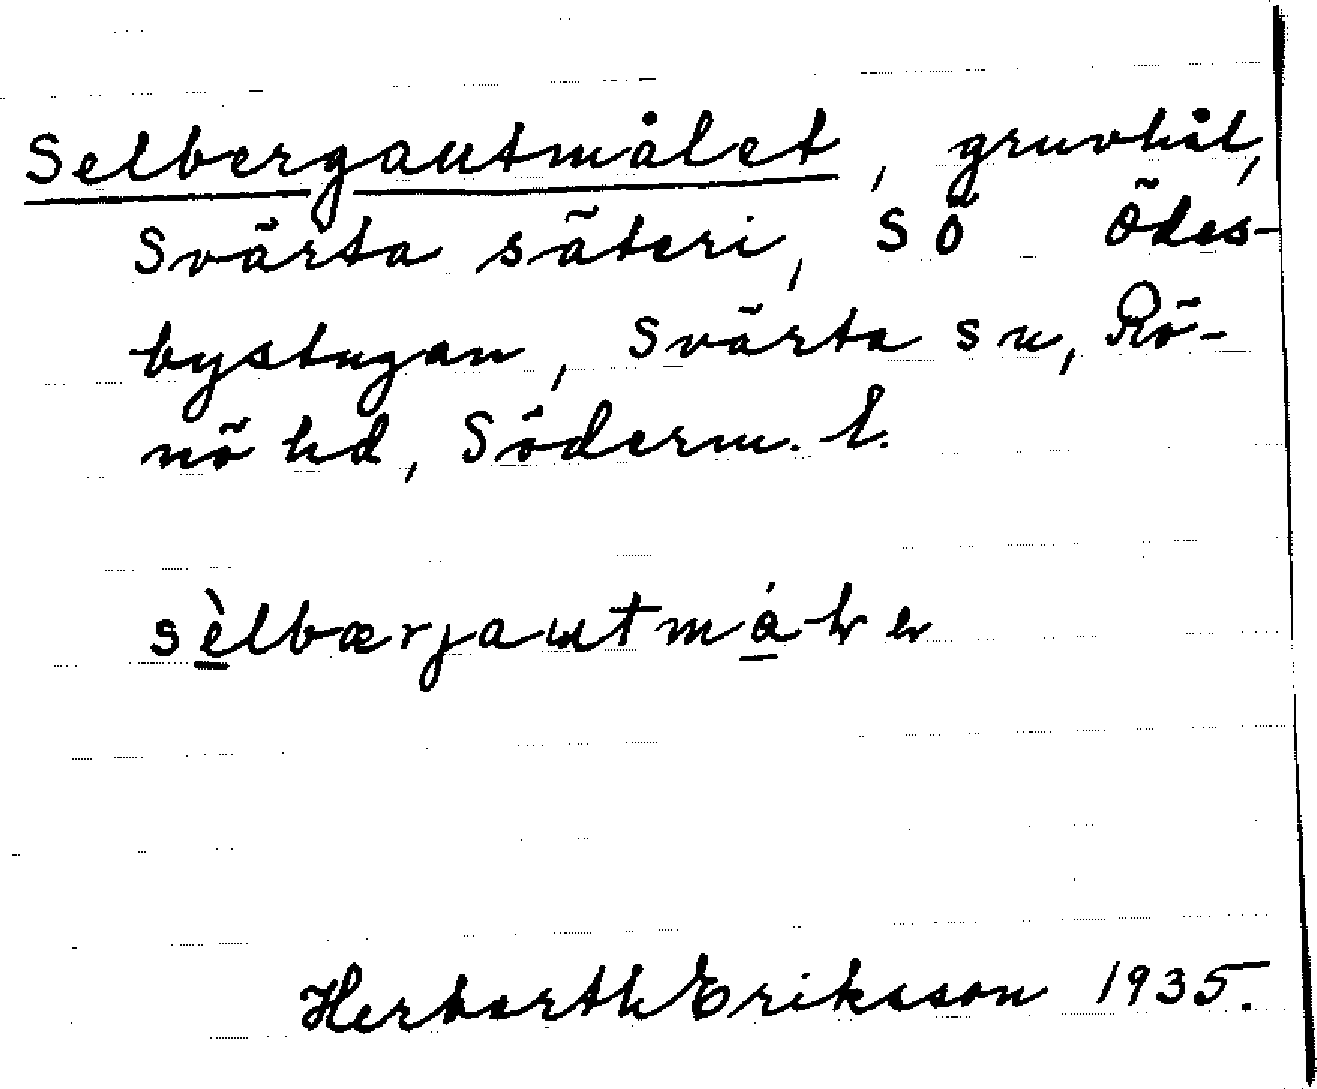 Selbergautmålet, gruvhål,
Svärta säteri, SÖ Ödes-
bystugan, Svärta sn, Rö-
nö hd, Söderm. l.
Herbarth Eriksson 1935.